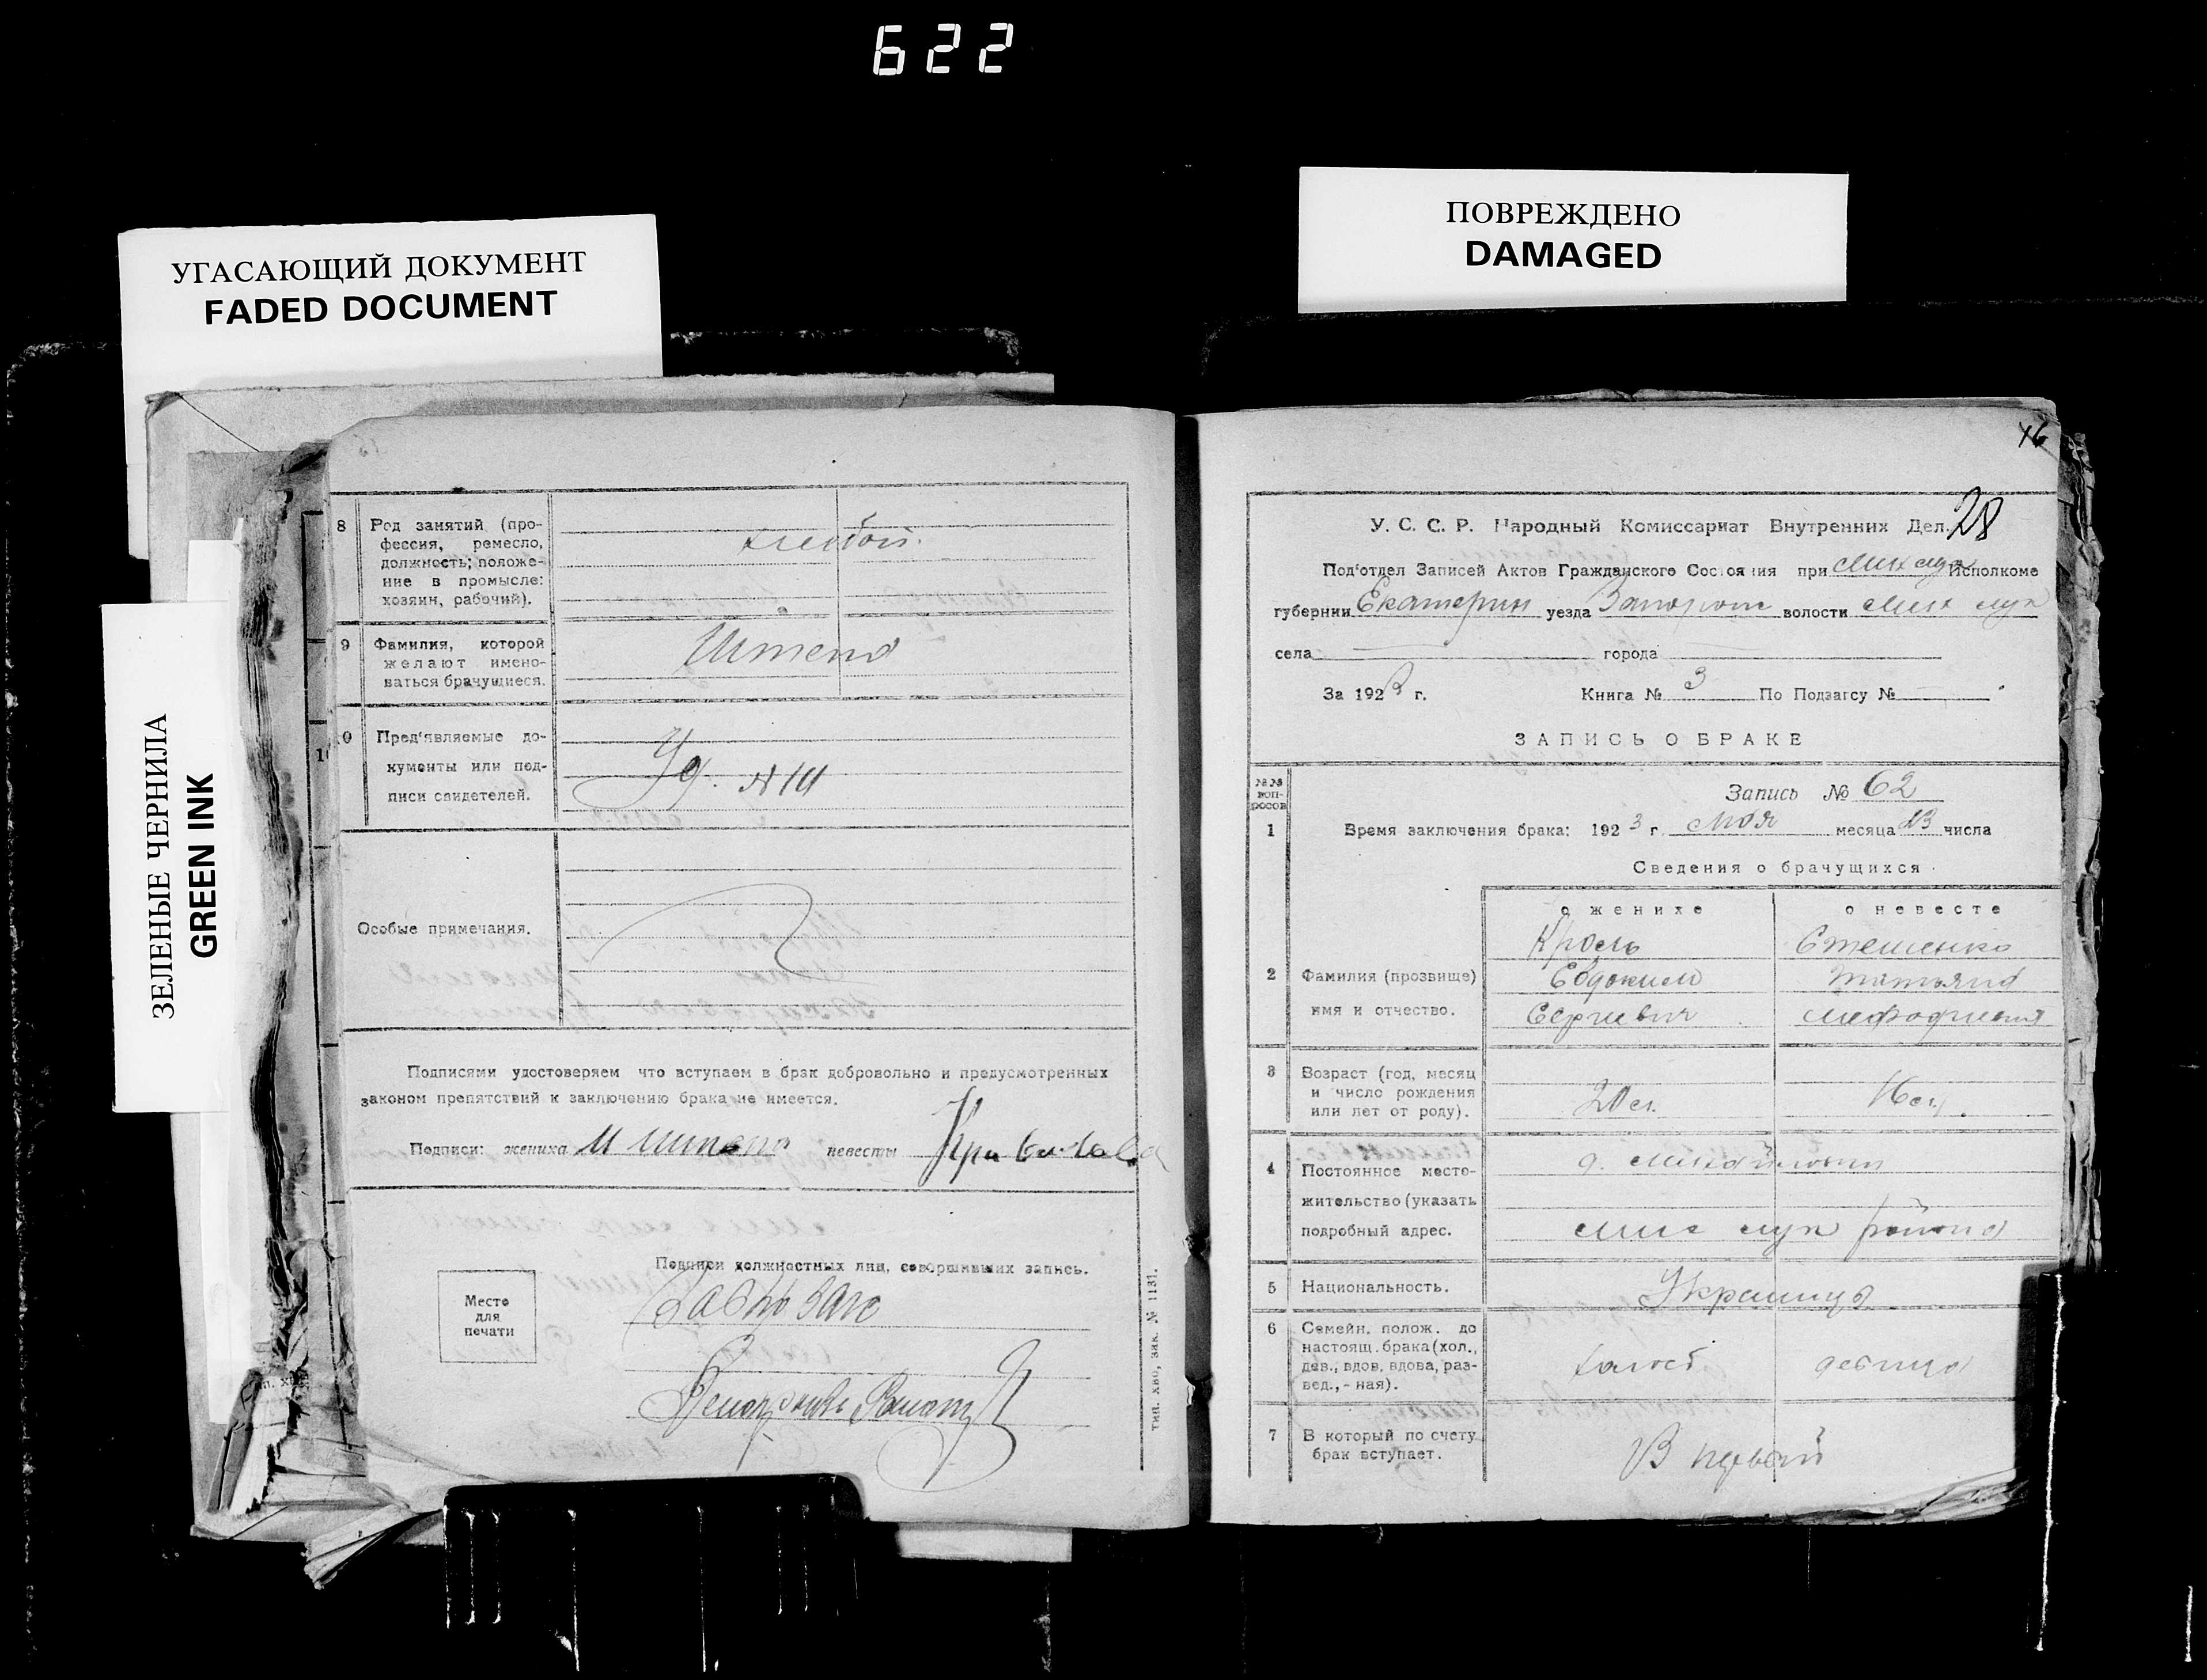 622
УГАСАЮЩИЙ ДОКУМЕНТ
FADED DOCUMENT
ПОВРЕЖДЕНО
DAMAGED
ЗЕЛЕНЫЕ ЧЕРНИЛА
GREEN INK
8 Род занятий (про-
фессия, ремесло,
должность; положе-
ние в промысле:
хозяин, рабочий).
9 Фамилия, которой
желают имено-
ваться брачущиеся.
Штепа
0 Пред'являемые до-
кументы или под-
писи свидетелей.
Уд. №
Особые примечания.
Подписями удостоверяем что вступаем в брак добровольно и предусмотренных
законом препятствий к заключению брака не имеется.
Подписи: жениха И Штепа невесты
Подписи должностных лиц, совершивших запись.
Место
для
печати
Завпдзагс
тип. ХВО, зак. № 1131.
16
28
У. С. С. Р. Народный Комиссариат Внутренних Дел.
Под'отдел Записей Актов Гражданского Состояния при Мих лук Исполкоме
губернии Екатерин уезда Запорож волости Мих лук
села города
За 1923 г. Книга № 3 По Подзагсу №
ЗАПИСЬ О БРАКЕ
№№ воп-
росов
Запись № 62
1 Время заключения брака: 1923 г. Мая месяца 23 числа
Сведения о брачущихся
о женихе о невесте
Кроль Стешенко
2 Фамилия (прозвище) Евдоким Татьяна
имя и отчество. Сергиевич Мефодиевна
3 Возраст (год, месяц
и число рождения
или лет от роду). 20 л. 16 л.
4 Постоянное место-
жительство (указать
подробный адрес. Мих лук района
5 Национальность. Украинцы
6 Семейн. полож. до
настоящ. брака (хол.,
дев., вдов, вдова, раз-
вед., - ная). холост девица
7 В который по счету
брак вступает. В первый